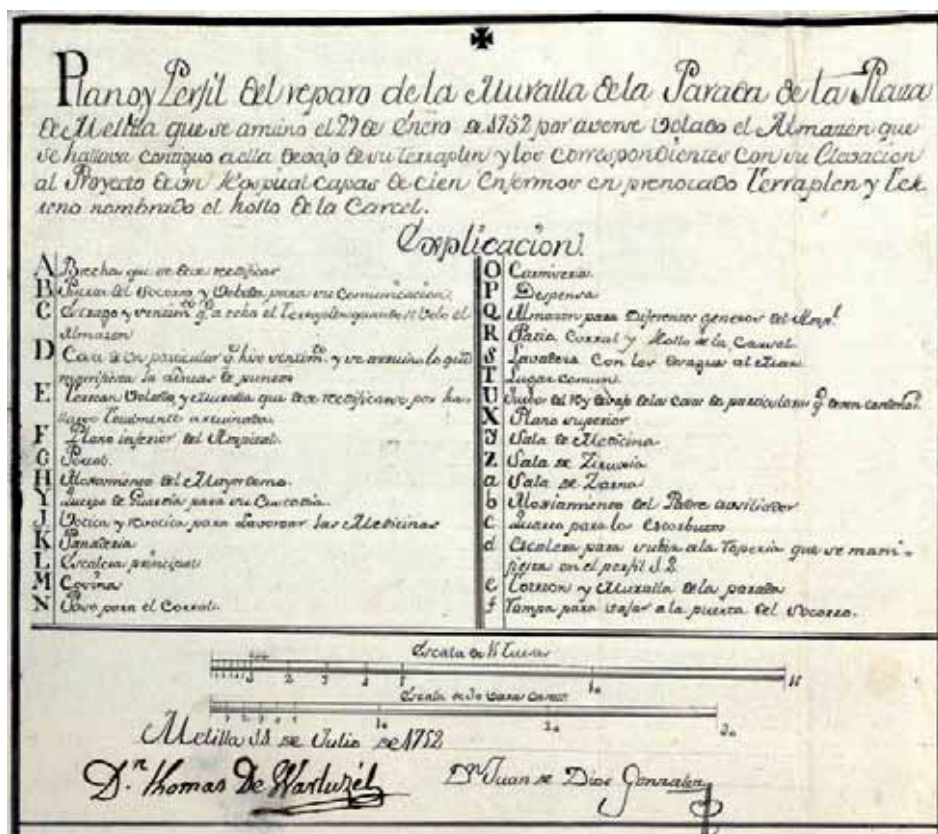 Plano y Perfil del reparo de la Muralla de la Parada de la Plaza
de Melilla que se arruino el 27 de Enero de 1752 por averse volado el Almazen que
se hallava contiguo a ella devajo de su terraplen y los correspondientes con su Elevacion
al Proyecto de un Hospital capas de cien Enfermos en prenotado Terraplen y Ter
reno nombrado el hollo de la Carcel.
Explicacion
A Brecha que se deve rectificar
B Puerta del Socorro y Bobeda para su Comunicacion
C Estrago y sentimto. q. a echo el Terraplen quando se Volo el
Almazen
D Casa de un particular q. hizo sentimto. y se arruino lo que
manifiesta la de puntos
E Bobeda y Muralla que deve rectificarse por ha
llarse totalmente arruinada
F Plano inferior del Ospital.
G Portal.
H Aloxamiento del Mayordomo.
Y Cuerpo de Guardia para su Custodia.
J Votica y para Lavorar las Medicinas
K Panateria
L Escalera principal
M Cosina
N Paso para el Corral.
O Carniseria
P Despensa
Q Almazen para Diferentes generos del Ospl.
R Patio Corral y Hollo de la Carsel
S Lavadero Con los desagues al Mar
T Lugar comun
U del Rey devajo de las Casas de particulares q.
X Plano superior
y Sala de Medicina
Z Sala de Zirugia
a Sala de Zarna
b Aloxiamiento del Padre auxiliador
c Quarto para los
d Escalera para subir a la que se mani-
fiesta en el perfil 1.2
e Torreon y Muralla de la parada
f Rampa para vajar a la puerta del Socorro.
Escala de 11 Tuesas
1 2 3 4 5 10 11
Escala de 30 Varas
1 2 3 4 5 10 20 30
Melilla 11 de Julio de 1752
Dn. Thomas De Warluzél
Dn. Juan de Dios Gonzalez